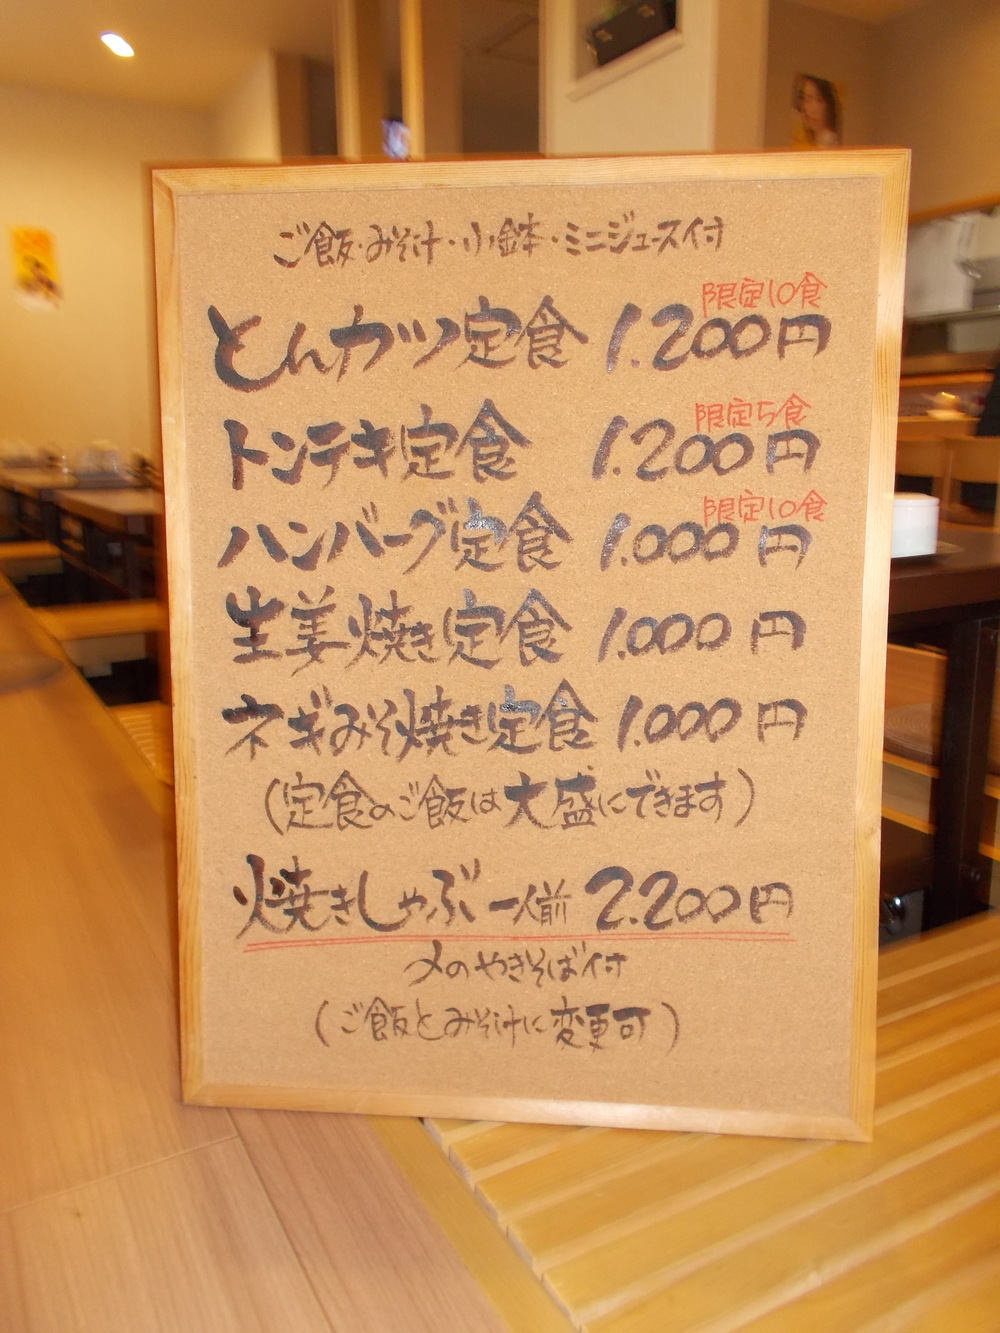 ご飯・みそ汁・小鉢・ミニジュース付
限定10食
とんカツ定食 1.200円
限定5食
トンテキ定食 1.200円
限定10食
ハンバーグ定食 1.000円
生姜焼き定食 1.000円
ネギみそ焼き定食 1.000円
(定食のご飯は大盛にできます)
焼きしゃぶ一人前 2.200円
〆のやきそば付
(ご飯とみそ汁に変更可)